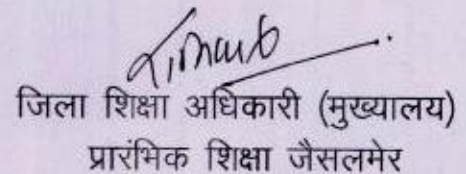 जिला शिक्षा अधिकारी (मुख्यालय)
प्रारंभिक शिक्षा जैसलमेर